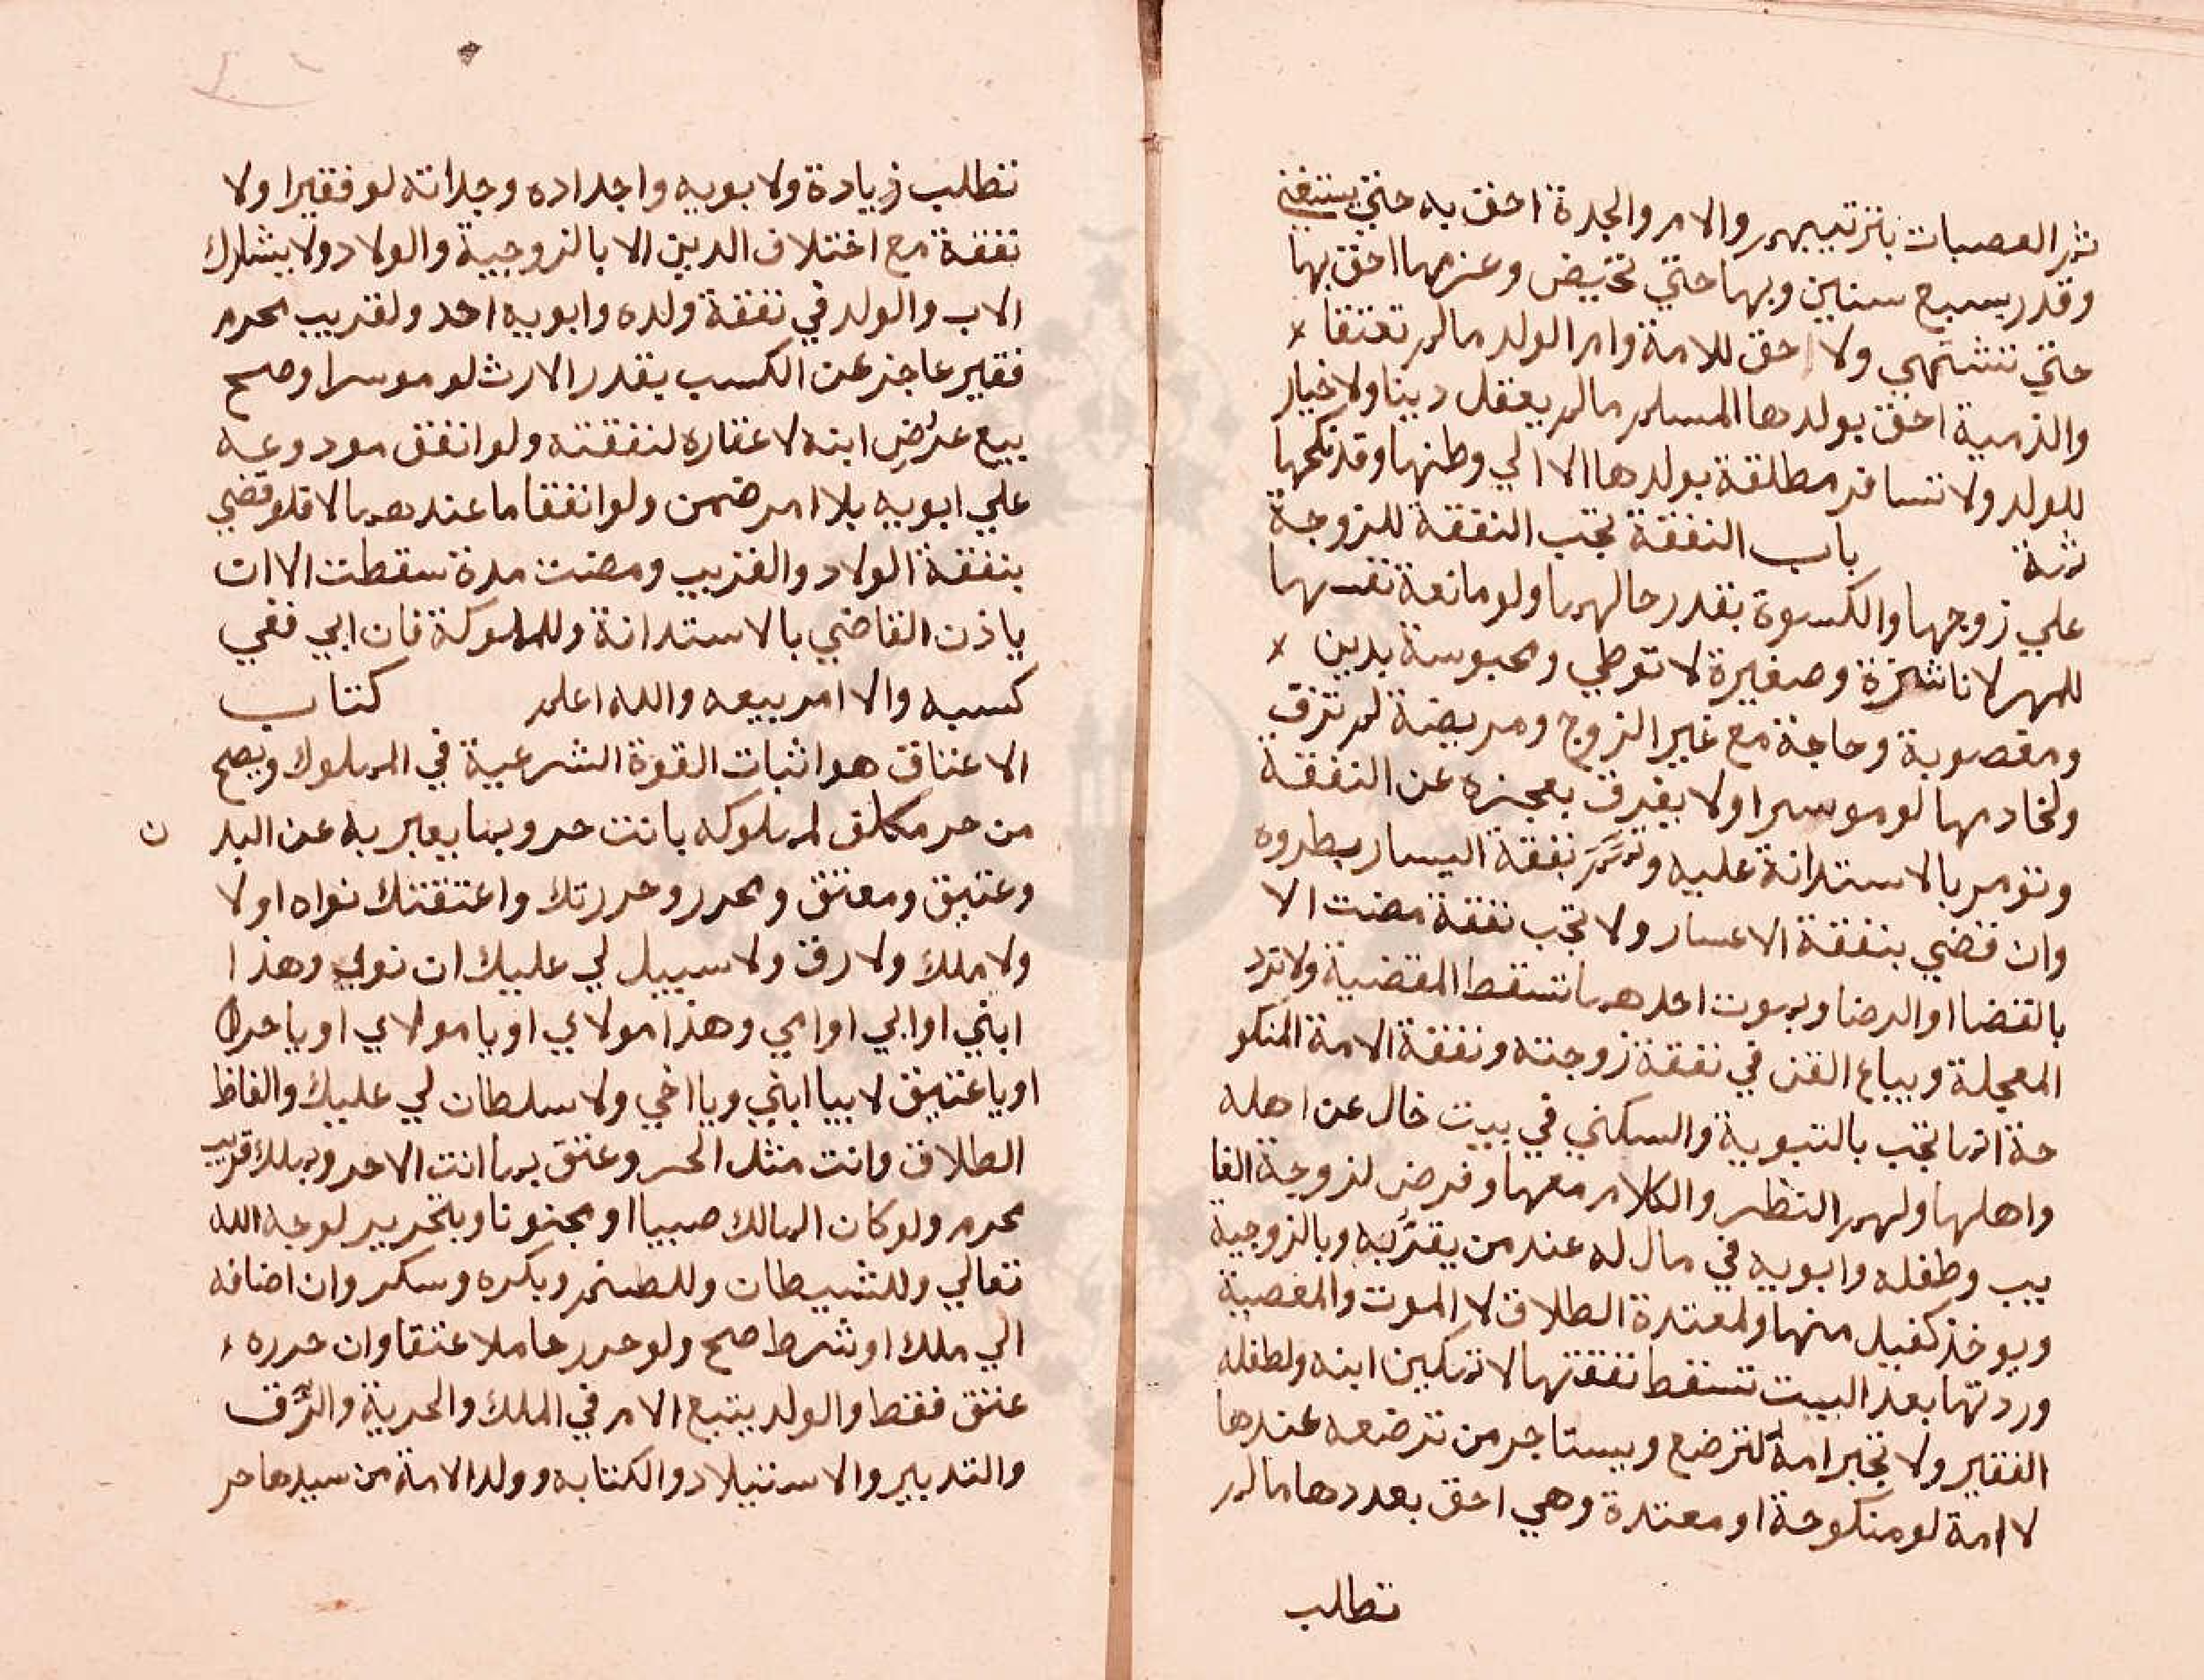 ثم العصبات بترتيبهم والام والجدة احق به حتي يستغني
وقدر بسبع سنين وبها حتي تحيض وغيرهما احق بها
حتي تشتهي ولا حق للامة وام الولد مالم تعتقا
والذمية احق بولدها المسلم مالم يعقل دينا ولا خيار
للولد ولا تسافر مطلقة بولدها الا الي وطنها وقد نكحها
ثمة باب النفقة تجب النفقة للزوجة
علي زوجها والكسوة بقدر حالهما ولو مانعة نفسها
للمهر لا ناشزة وصغيرة لا توطي ومحبوسة بدين
ومغصوبة وحاجة مع غير الزوج ومريضة لم تزف
ولخادمها لو موسرا ولا يفرق بعجزه عن النفقة
وتومر بالاستدانة عليه وتمم نفقة اليسار بطروه
وان قضي بنفقة الاعسار ولا تجب نفقة مضت الا
بالقضا او الرضا وبموت احدهما تسقط المقضية ولا ترد
المعجلة ويباع القن في نفقة زوجته ونفقة الامة المنكو
حة انما تجب بالتبوية والسكني في بيت خال عن اهله
واهلها ولهم النظر والكلام معها وفرض لزوجة الغا
يب وطفله وابويه في مال له عند من يقر به وبالزوجية
ويوخذ كفيل منها ولمعتدة الطلاق لا الموت والمعصية
وردتها بعد البت تسقط نفقتها لا تمكين ابنه ولطفله
الفقير ولا تجبر امه لترضع ويستاجر من ترضعه عندها
لا امة لو منكوحة او معتدة وهي احق بعددها مالم
تطلب
تطلب زيادة ولابويه واجداده وجداته لو فقيرا ولا
نفقة مع اختلاف الدين الا بالزوجية والولاد ولا يشارك
الاب والولد في نفقة ولده وابويه احد ولقريب محرم
فقير عاجز عن الكسب بقدر الارث لو موسرا وصح
بيع عرض ابنه لا عقاره لنفقته ولو انفق مودوعه
علي ابويه بلا امر ضمن ولو انفقا ما عندهما لا فلو قضي
بنفقة الولاد والقريب ومضت مدة سقطت الا ان
ياذن القاضي بالاستدانة وللملوكه فان ابي ففي
كسبه والا امر ببيعه والله اعلم كتاب
الاعتاق هو اثبات القوة الشرعية في المملوك ويصح
من حر مكلف لمملوكه بانت حر وبما يعبر به عن البدن
وعتيق ومعتق ومحرر وحررتك واعتقتك نواه او لا
ولا ملك ولا رق ولا سبيل لي عليك ان نوي وهذا
ابني او ابي او امي وهذا مولاي او يا مولاي او يا حر
او يا عتيق لا بيا ابني ويا اخي ولا سلطان لي عليك والفاظ
الطلاق وانت مثل الحر وعتق بما انت الا حر وبملك قريب
محرم ولو كان المالك صبيا او مجنونا وبتحرير لوجه الله
تعالي وللشيطان وللصنم وبكره وسكر وان اضافه
الي ملك او شرط صح ولو حرر حاملا عتقا وان حرره
عتق فقط والولد يتبع الام في الملك والحرية والرق
والتدبير والاستيلاد والكتابه وولد الامة من سيدها حر